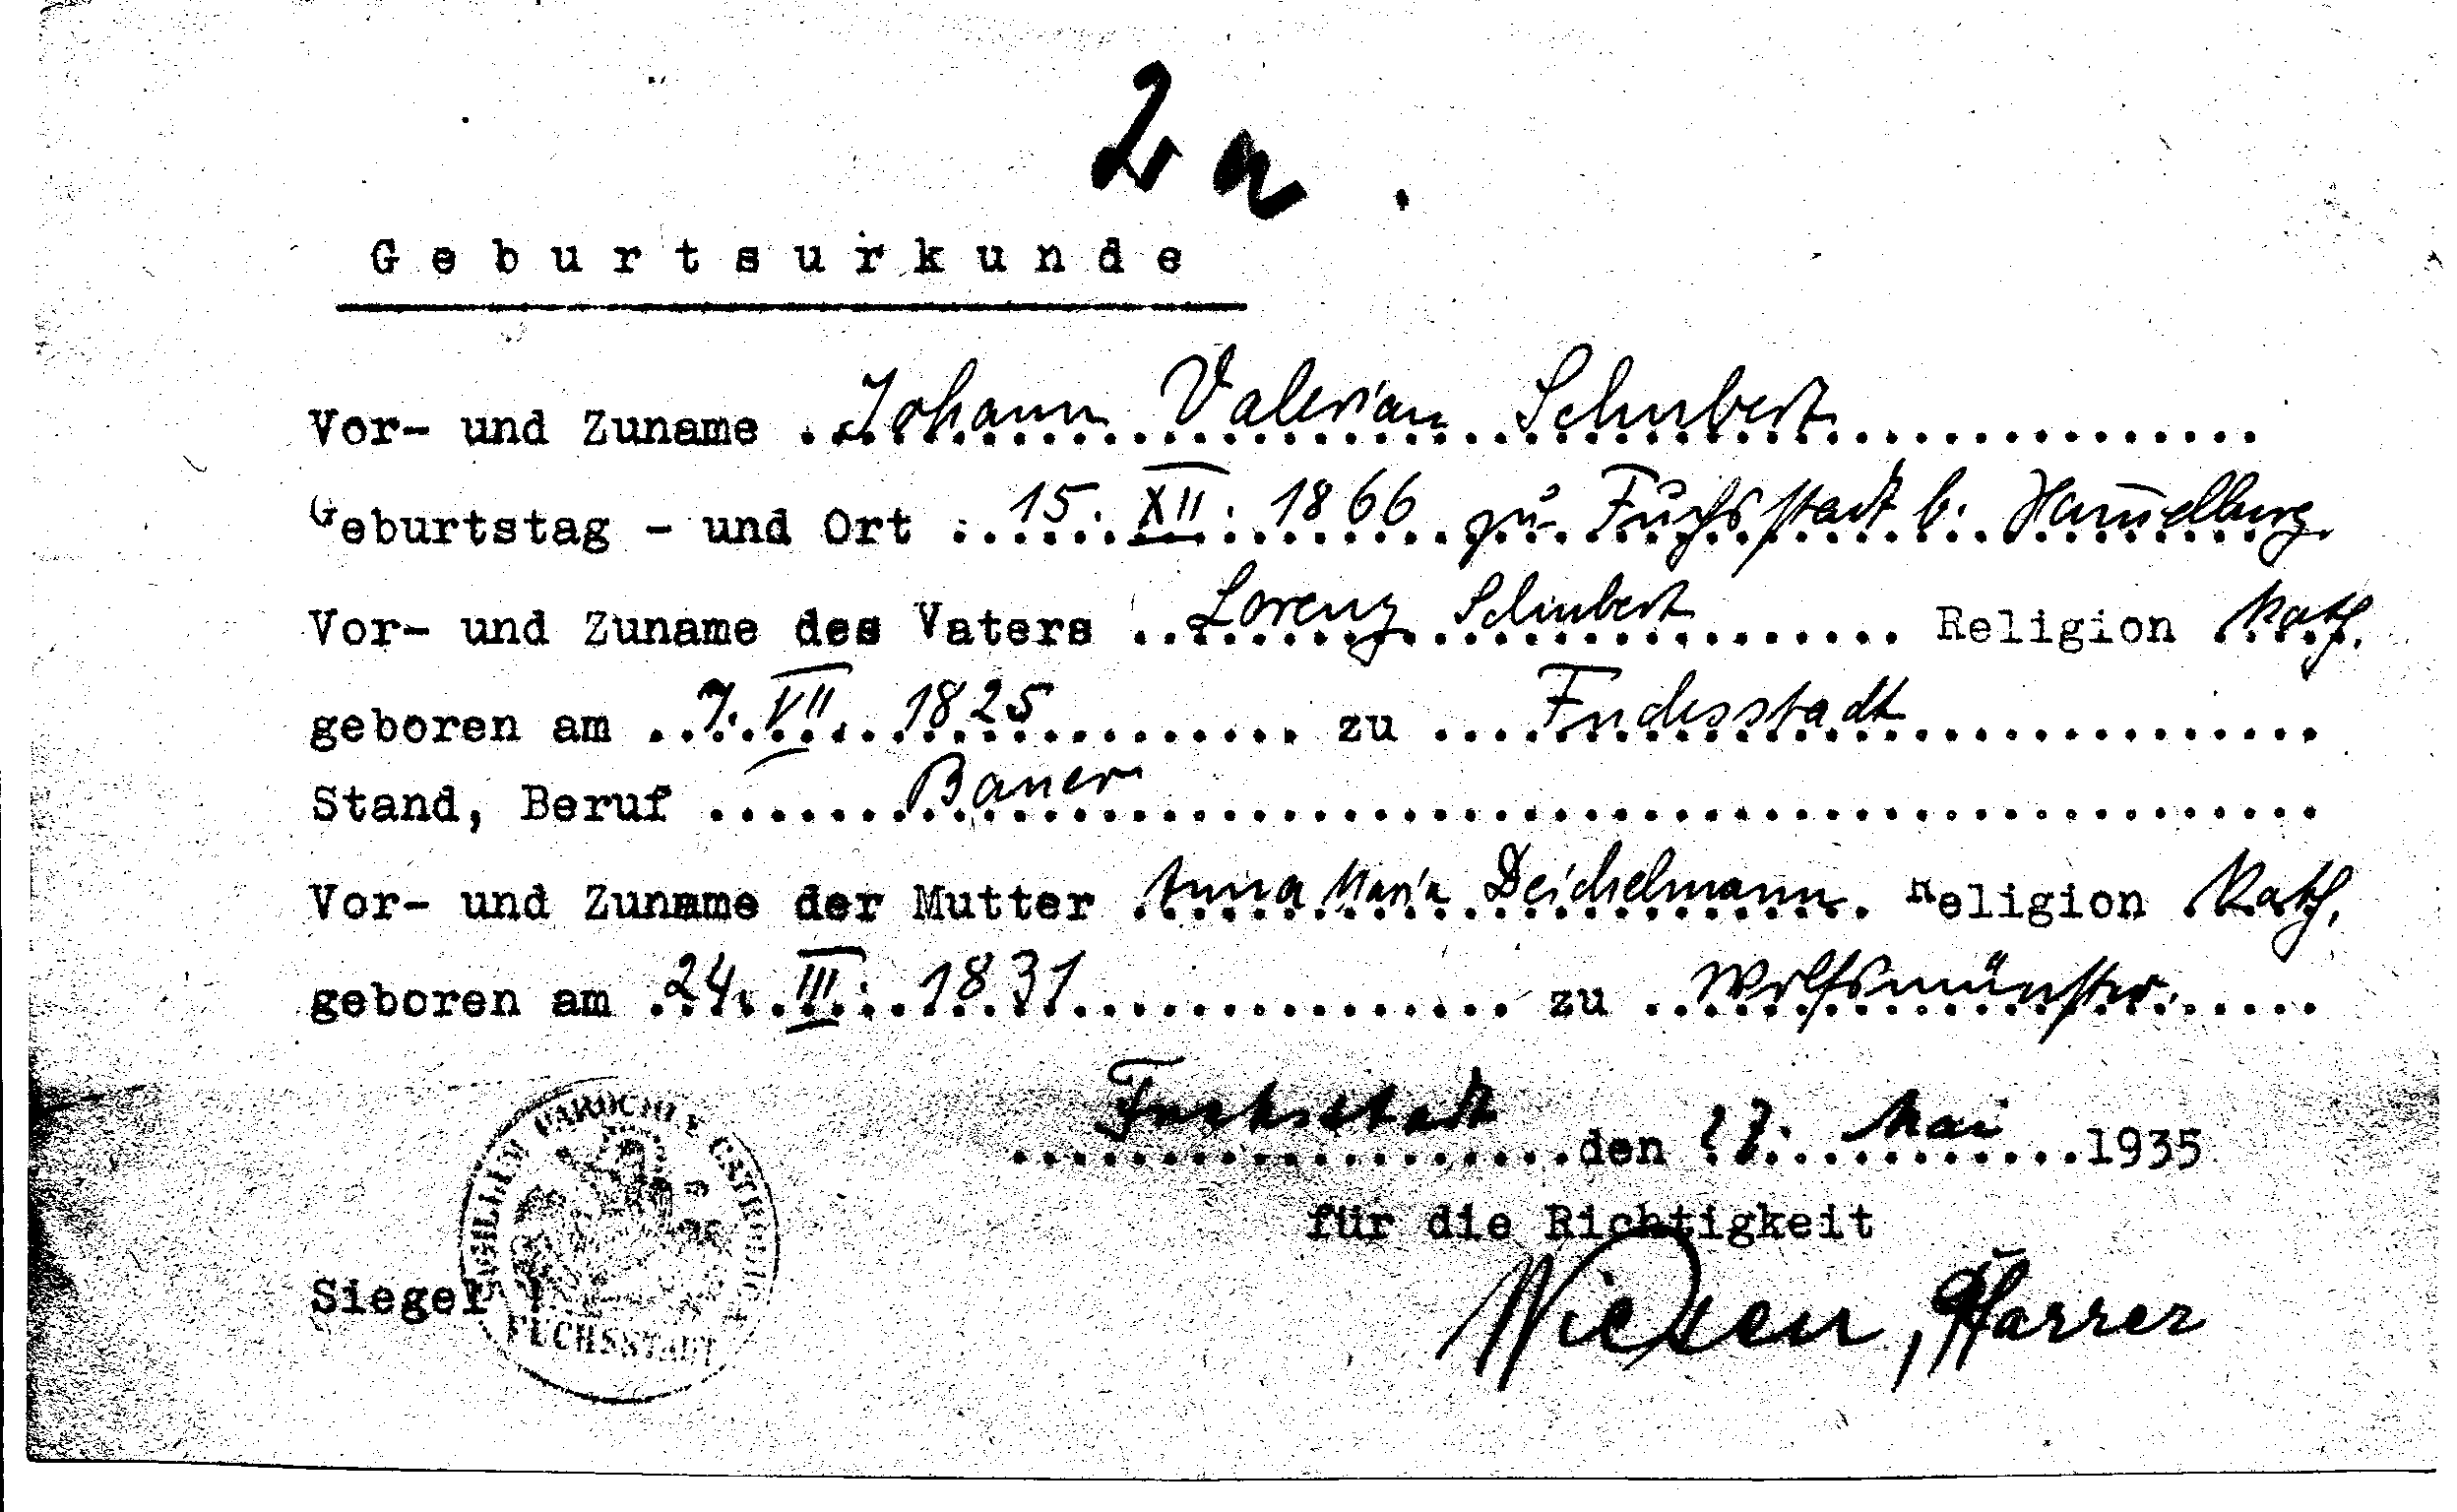 2 a.
Geburtsurkunde
Vor- und Zuname Johann Valerian Schubert
Geburtstag - und Ort 15. XII. 1866 zu Fuchsstadt b. Hammelburg
Vor- und Zuname des Vaters Lorenz Schubert Religion Kath.
geboren am 7. VII. 1825 zu Fuchsstadt
Stand, Beruf Bauer
Vor- und Zuname der Mutter Anna Maria Deichelmann Religion Kath.
geboren am 24. III. 1831 zu Wolfsmünster.
Fuchsstadt den Mai 1935
für die Richtigkeit
Pfarrer
Siegel
PAROCHIAE CATHOLIC
FUCHSSTADT